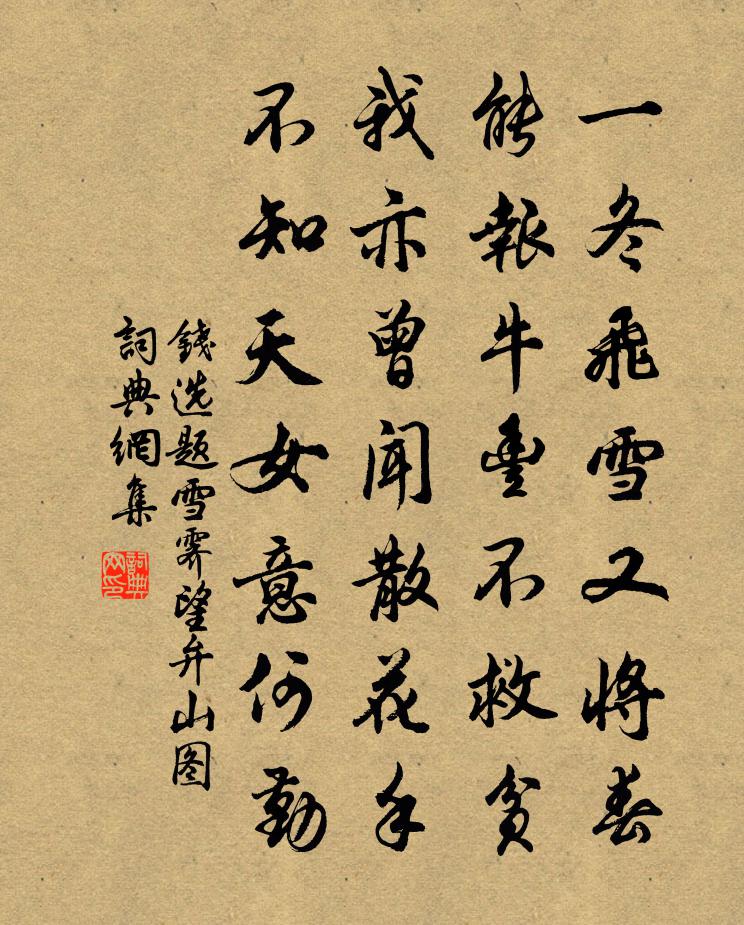 一冬飛雪又將春
能報牛豐不救貧
我亦曾聞散花手
不知天女意何勤
錢选题雪霽望弁山图
詞典網集
詞典網印